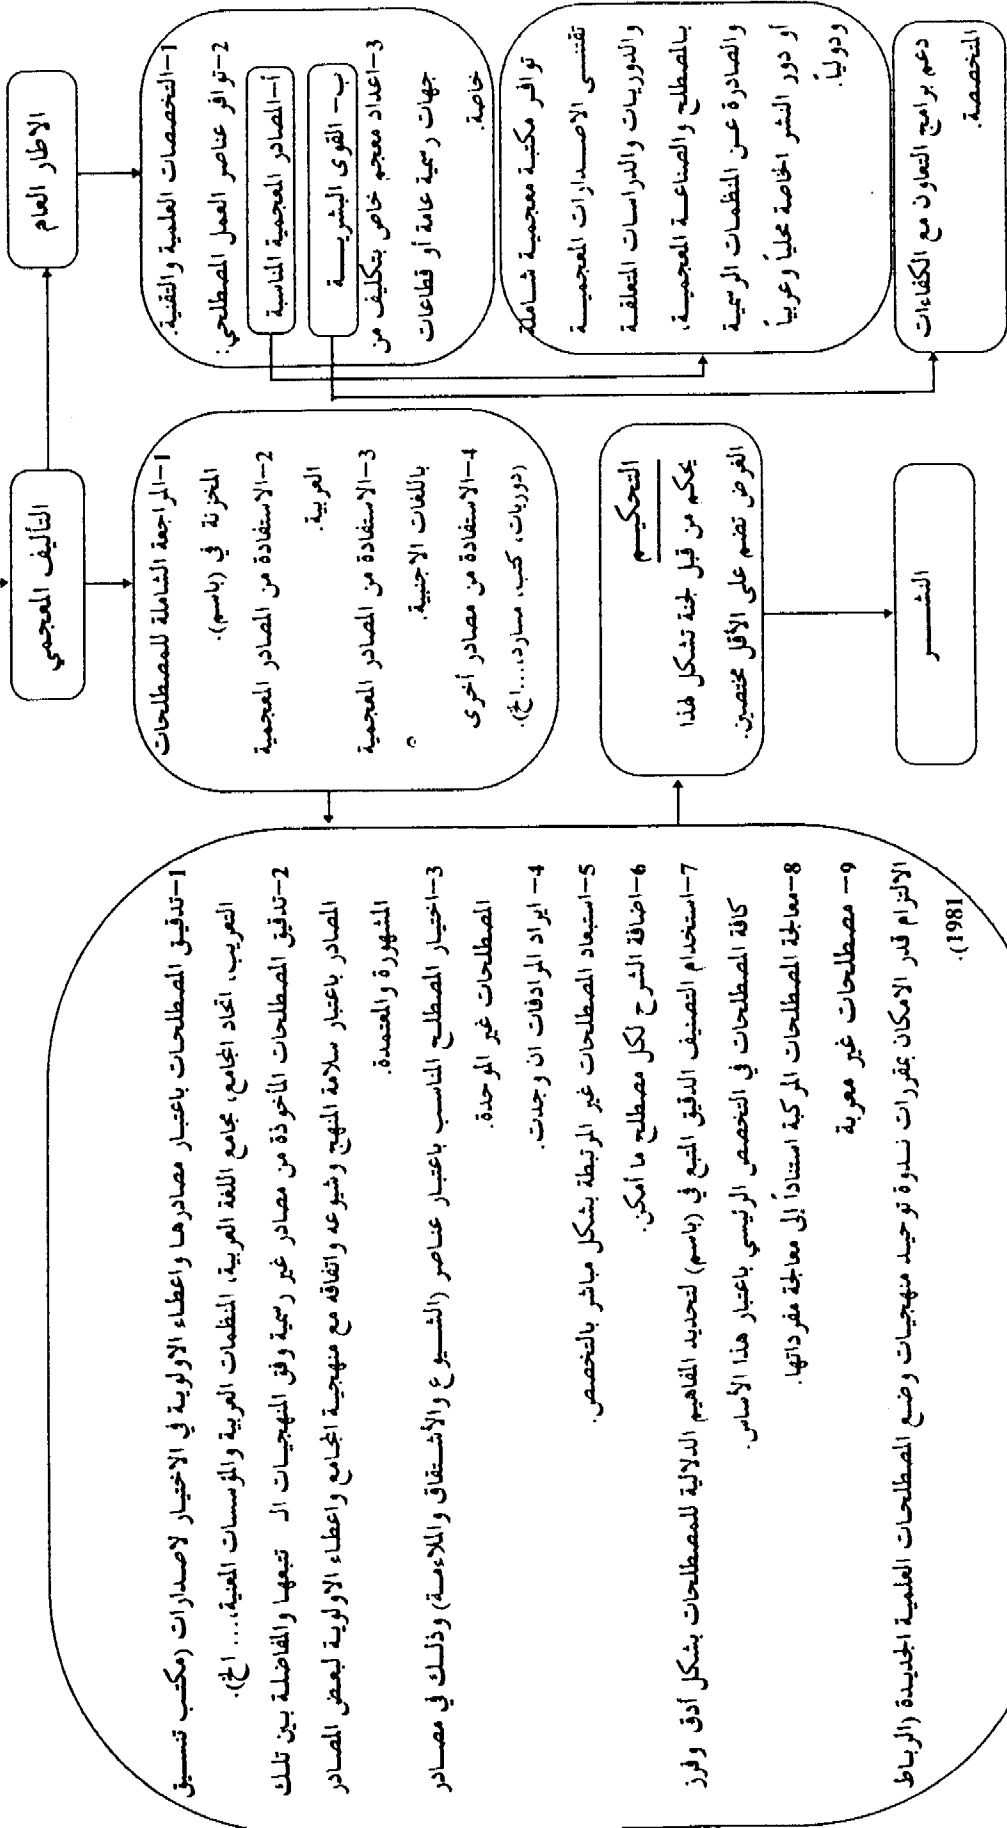 الاطار العام
1-التخصصات العلمية والتقنية.
2-توافر عناصر العمل المصطلحي:
أ-المصادر المعجمية المناسبة
ب- القوى البشرية
3-اعداد معجم خاص بتكليف من
جهات رسمية عامة أو قطاعات
خاصة.
توافر مكتبة معجمية شاملة
تقتنى الاصدارات المعجمية
والدوريات والدراسات المتعلقة
بالمصطلح والصناعة المعجمية،
والصادرة عن المنظمات الرسمية
أو دور النشر الخاصة محلياً وعربياً
ودولياً.
دعم برامج التعاون مع الكفاءات
المتخصصة.
التأليف المعجمي
1-المراجعة الشاملة للمصطلحات
المخزنة في (باسم).
2-الاستفادة من المصادر المعجمية
العربية.
3-الاستفادة من المصادر المعجمية
باللغات الاجنبية.
4-الاستفادة من مصادر أخرى
(دوريات، كتب، مسارد،...الخ).
التحكيم
يحكم من قبل لجنة تشكل لهذا
الغرض تضم على الأقل مختصين.
النشر
1-تدقيق المصطلحات باعتبار مصادرها واعطاء الاولوية في الاختيار لاصدارات (مكتب تنسيق
التعريب، اتحاد المجامع، مجامع اللغة العربية، المنظمات العربية والمؤسسات المعنية،... الخ).
2-تدقيق المصطلحات المأخوذة من مصادر غير رسمية وفق المنهجيات الـ تتبعها والمفاضلة بين تلك
المصادر باعتبار سلامة المنهج وشيوعه واتفاقه مع منهجية المجامع واعطاء الاولوية لبعض المصادر
المشهورة والمعتمدة.
3-اختيار المصطلح المناسب باعتبار عناصر (الشيوع والأشتقاق والملاءمة) وذلك في مصادر
المصطلحات غير الموحدة.
4- ايراد المرادفات ان وجدت.
5-استبعاد المصطلحات غير المرتبطة بشكل مباشر بالتخصص.
6-اضافة الشرح لكل مصطلح ما أمكن.
7-استخدام التصنيف الدقيق المتبع في (باسم) لتحديد المفاهيم الدلالية للمصطلحات بشكل أدق وفرز
كافة المصطلحات في التخصص الرئيسي باعتبار هذا الأساس.
8-معالجة المصطلحات المركبة استناداً إلى معالجة مفرداتها.
9- مصطلحات غير معربة
الالتزام قدر الامكان بمقررات ندوة توحيد منهجيات وضع المصطلحات العلمية الجديدة (الرباط
1981).